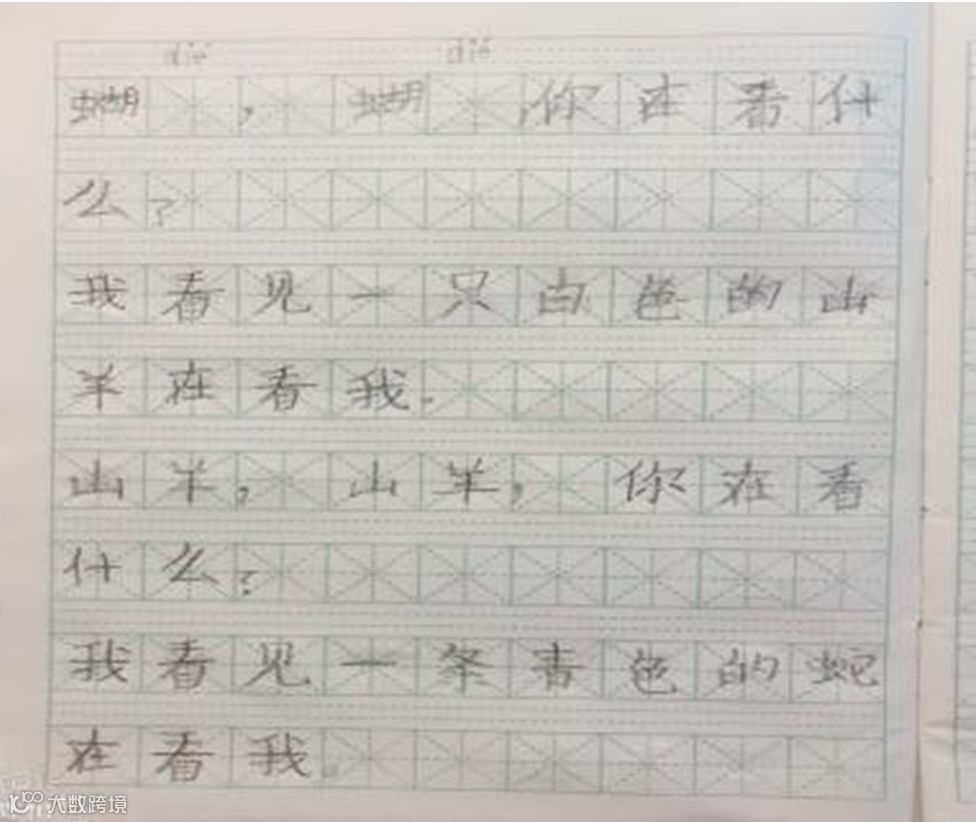 dié dié
蝴 ，蝴 ，你在看什
么？
我看见一只白色的山
羊在看我。
山羊，山羊，你在看
什么？
我看见一条青色的蛇
在看我。
大数跨境